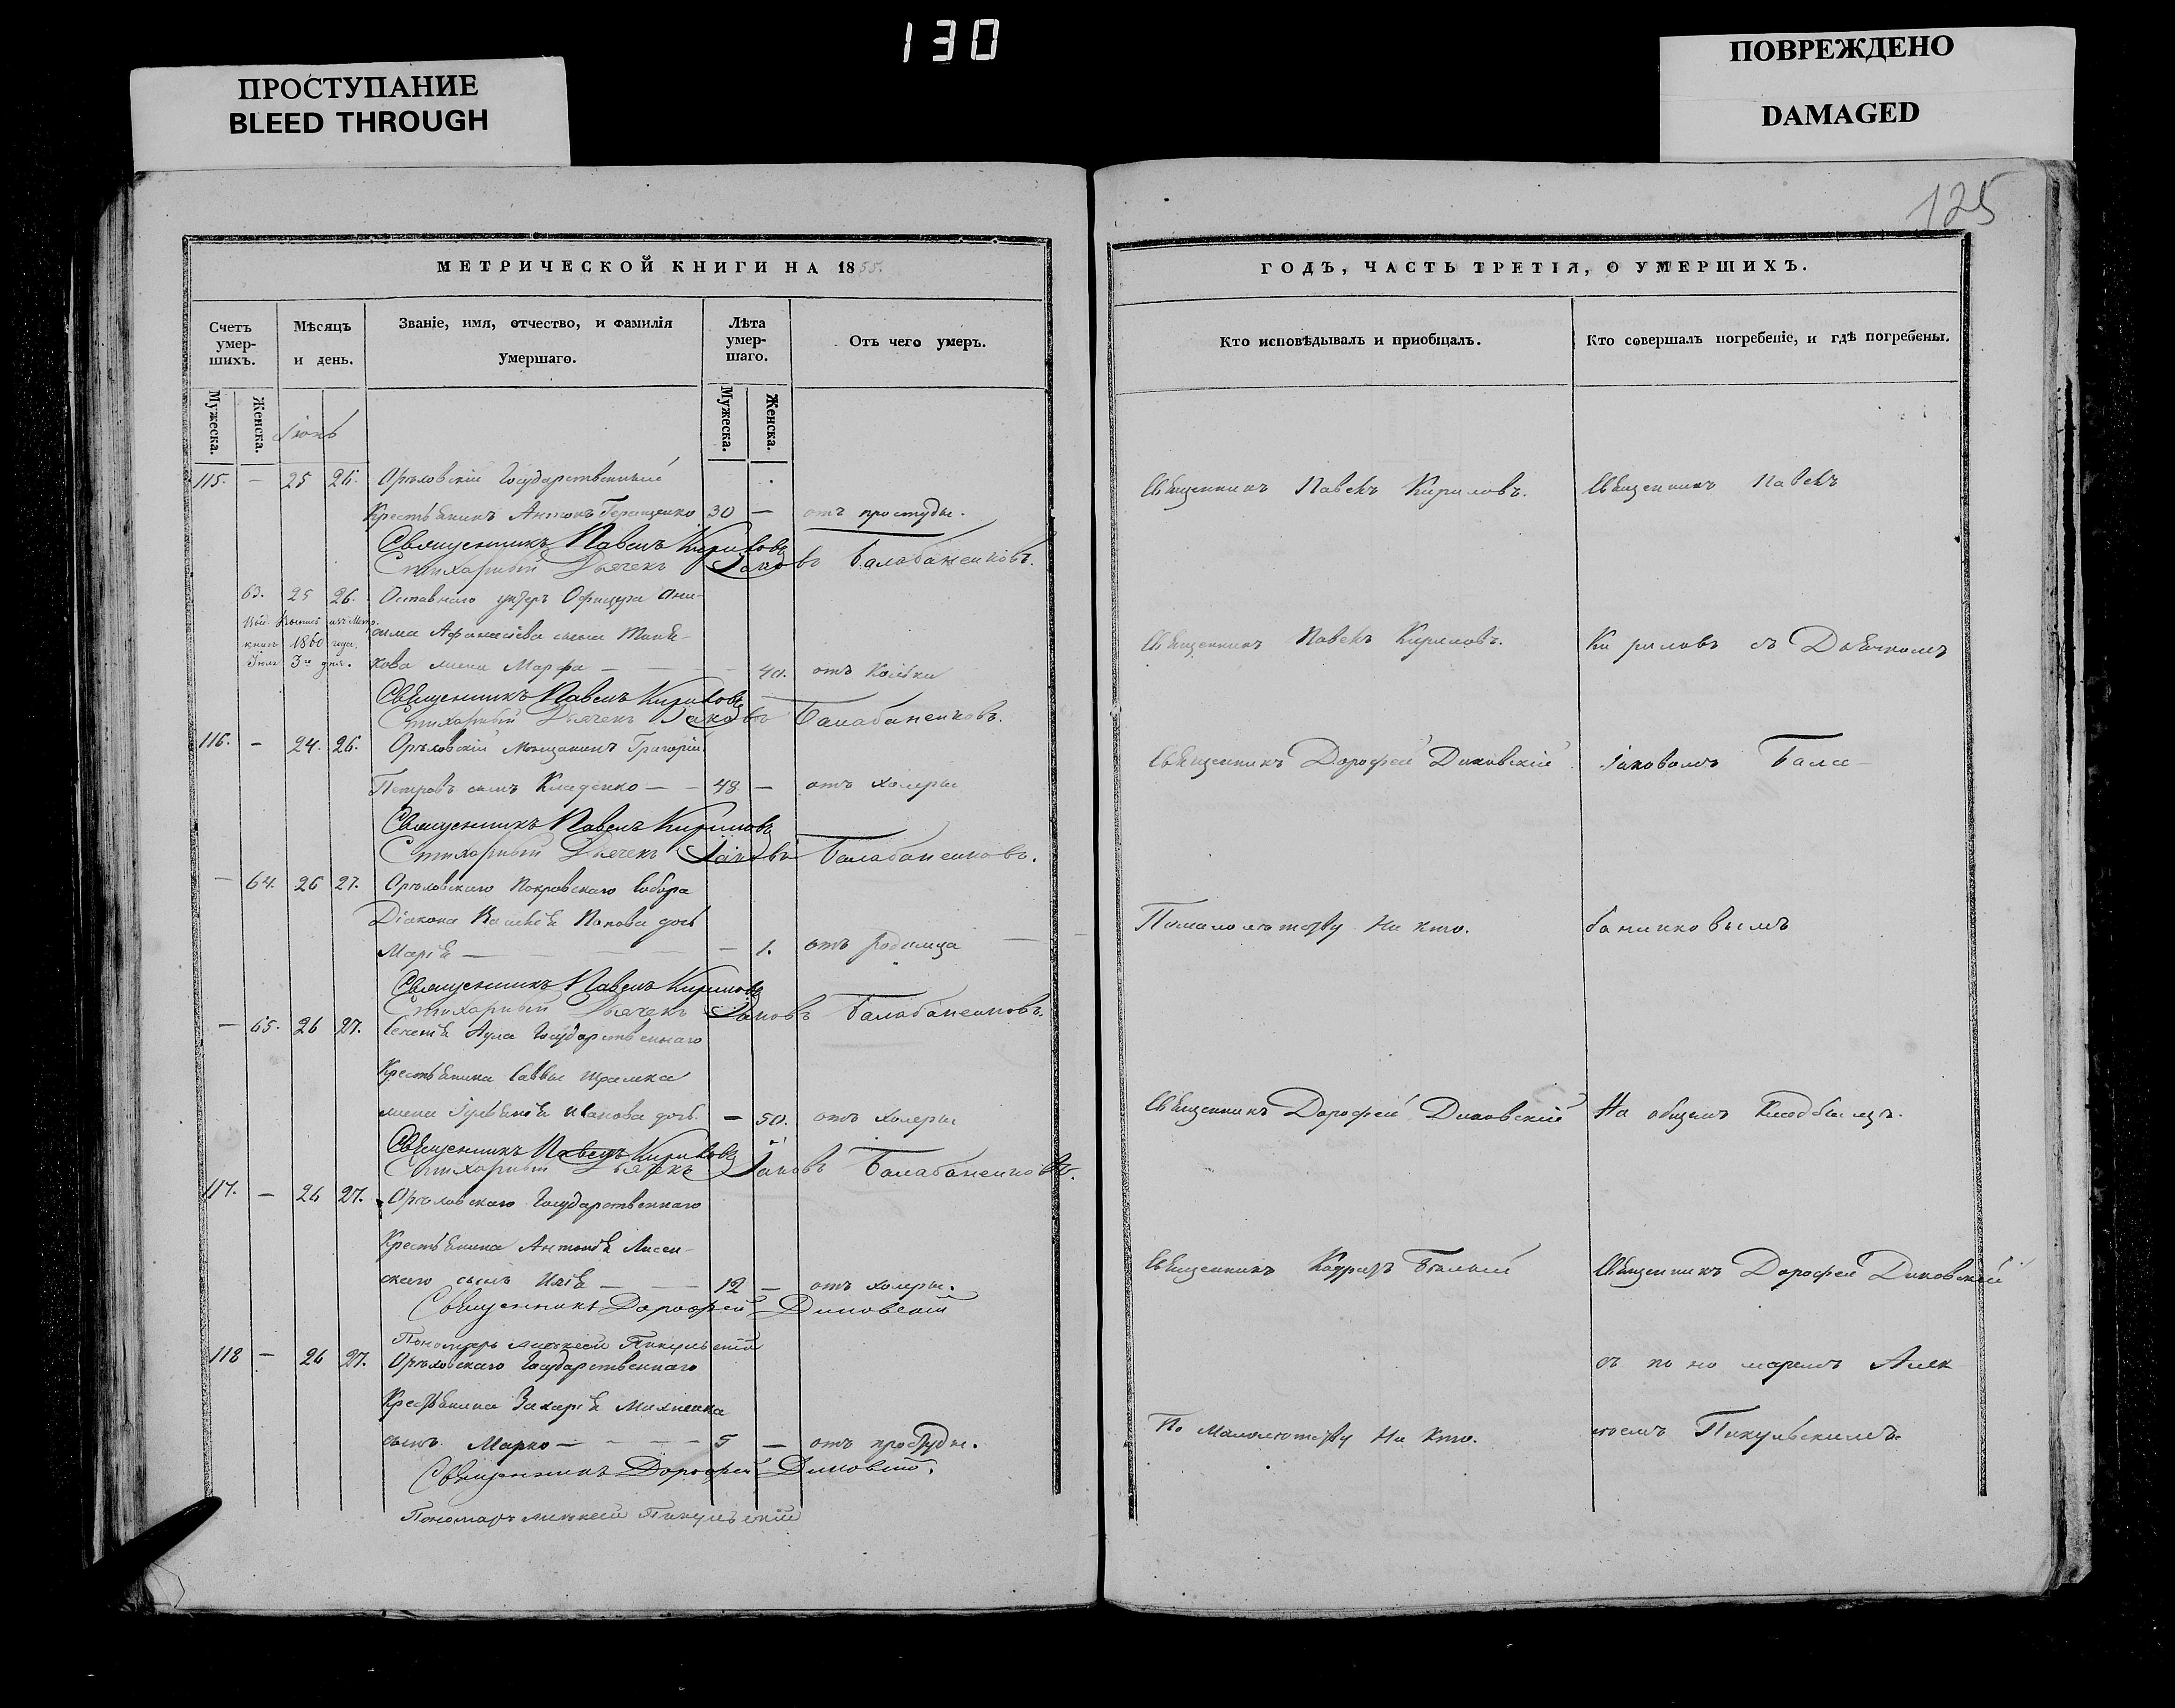 130
ПРОСТУПАНИЕ
BLEED THROUGH
ПОВРЕЖДЕНО
DAMAGED
125
МЕТРИЧЕСКОЙ КНИГИ НА 1855.
Счетъ умер-шихъ.
Мѣсяцъ и день.
Званіе, имя, отчество, и фамилія умершаго.
Лѣта умер-шаго.
Отъ чего умеръ.
Мужеска. Женска. Мужеска. Женска.
Іюнь
115. — 25 26. Орѣховскій Государственный
Крестьянинъ Антонъ Геращенко 30 — отъ простуды.
Священникъ Павелъ Кириловъ
Стихарный Дьячекъ Іаковъ Балабаненковъ.
63. 25 26. Оставнаго Унтеръ Офицера Они-
книги 1860 года
Іюля 3го дня.
сима Афанасіева сына
кова жена Марфа — 40. отъ
Священникъ Павелъ Кириловъ
Стихарный Дьячекъ Іаковъ Балабаненковъ.
116. — 24. 26. Орѣховскій Мещанинъ Григорій
Петровъ сынъ Кладенко — 48 — отъ холеры
Священникъ Павелъ Кириловъ
Стихарный Дьячекъ Іаковъ Балабаненковъ.
— 64. 26 27. Орѣховскаго Покровскаго Собора
Діакона Василія Попова дочь
Марія — — 1. отъ родимца
Священникъ Павелъ Кириловъ
Стихарный Дьячекъ Іаковъ Балабаненковъ.
— 65. 26 27. Государственнаго
Крестьянина Саввы
жена Іуліанія Иванова дочь. — 50. отъ холеры
Священникъ Павелъ Кириловъ
Стихарный Дьячекъ Іаковъ Балабаненковъ.
117. — 26 27. Орѣховскаго Государственнаго
Крестьянина Антонія Лисен-
скаго сынъ Илія — 12 — отъ холеры.
Священникъ Дорофей Диковскій
Пономарь Алексей Пикульскій
118 — 26 27. Орѣховскаго Государственнаго
Крестьянина Захарія Михненка
сынъ Марко — 5 — отъ простуды.
Священникъ Дорофей Диковскій.
Пономарь Алексей Пикульскій
ГОДЪ, ЧАСТЬ ТРЕТІЯ, О УМЕРШИХЪ.
Кто исповѣдывалъ и пріобщалъ.
Кто совершалъ погребеніе, и гдѣ погребены.
Священникъ Павелъ Кириловъ. Священникъ Павелъ
Священникъ Павелъ Кириловъ. Кириловъ съ Дьячкомъ
Священникъ Дорофей Диковскій Іаковомъ Бала-
По малолетству Ни кто. баненковымъ
Священникъ Дорофей Диковскій На общемъ Кладбищѣ.
Священникъ Бѣлый Священникъ Дорофей Диковскій
съ пономаремъ Алек
По малолетству Ни кто. сеемъ Пикульскимъ.